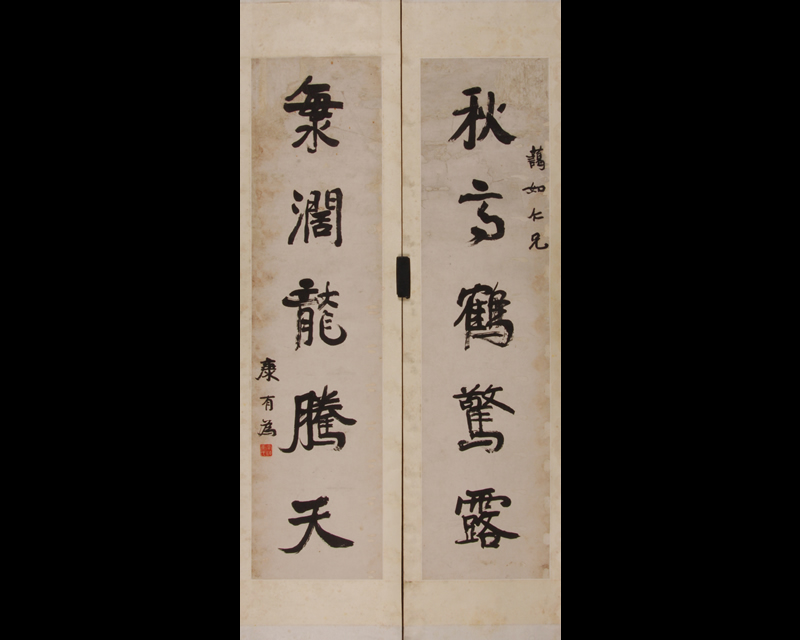 藹如仁兄
秋高鶴驚露
海濶龍騰天
康有為